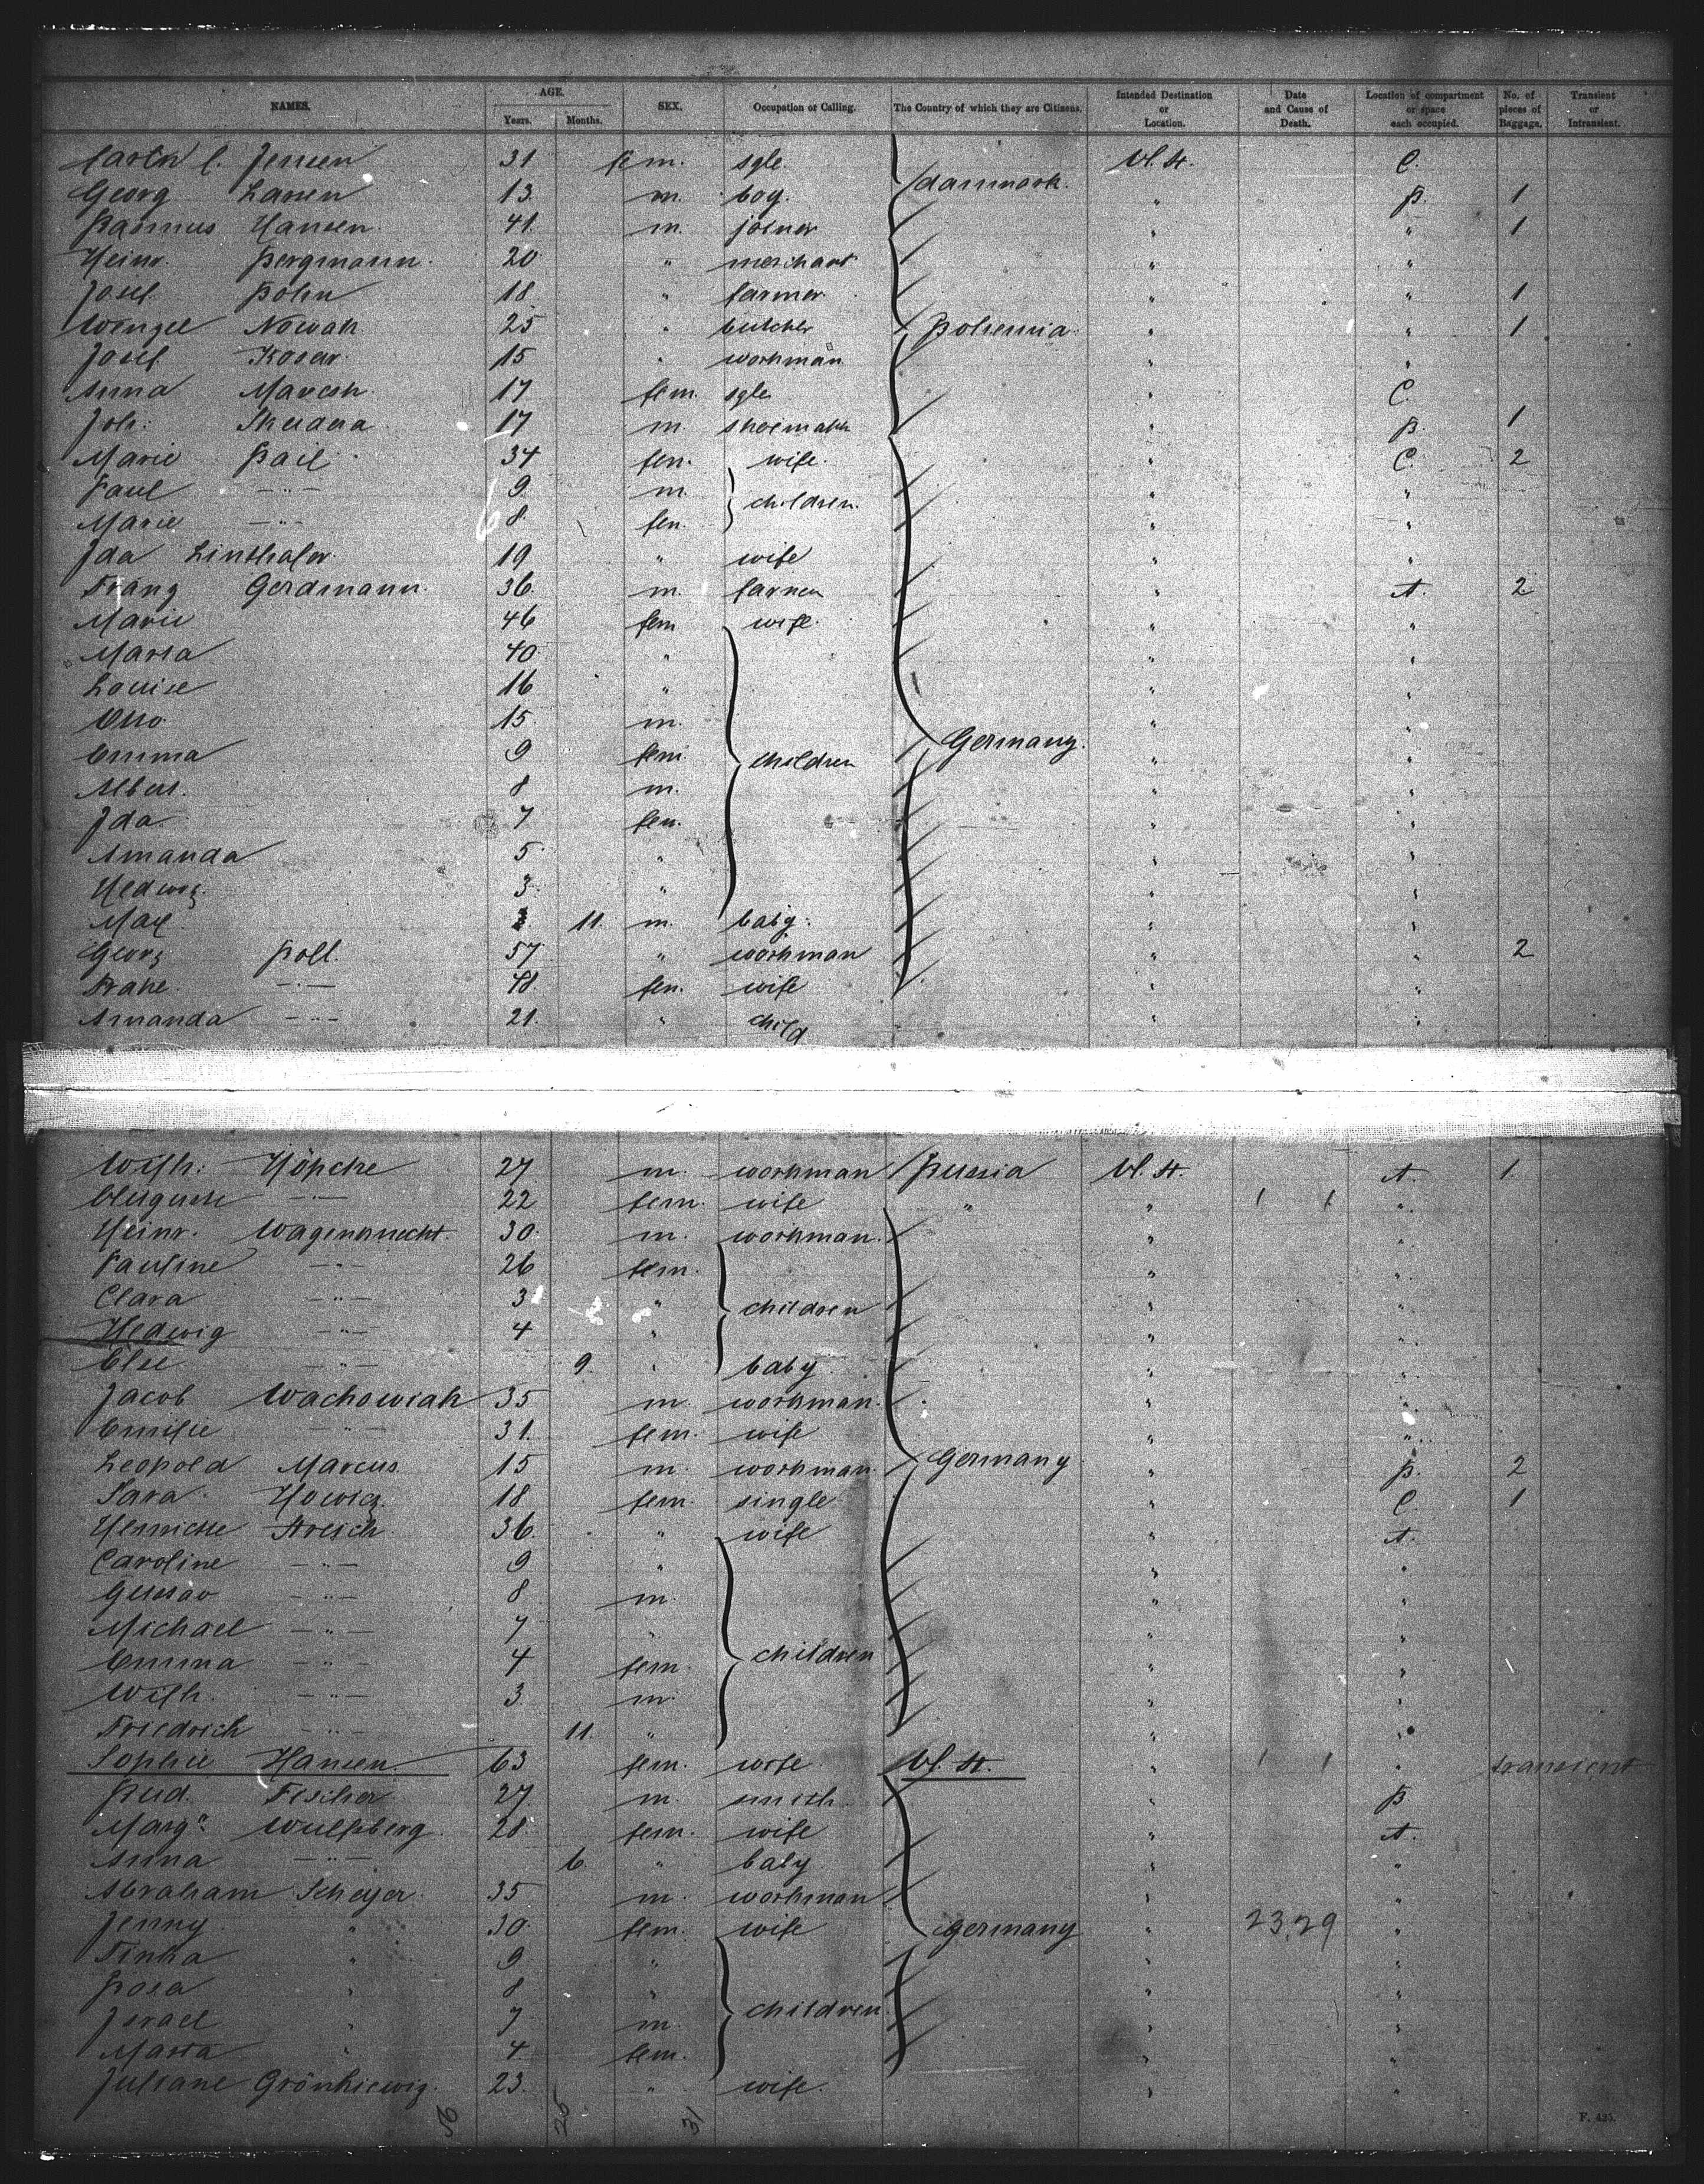 NAMES. AGE. Years. Months. SEX. Occupation or Calling. The Country of which they are Citizens. Intended Destination or Location. Date and Cause of Death. Location of compartment or space each occupied. No. of pieces of Baggage. Transient or Intransient.
Jensen 31 fem. sgle. U. St. C.
Georg Larsen 13 m. boy. danmark. " B. 1
Rasmus Hansen 41. m. joiner " " 1
Heinr. Bergmann. 20 " merchant " "
Josef Böhm 18 " farmer " " 1
Wenzel Nowak 25 " butcher Bohemia " " 1
Josef Kosar 15 " workman " "
Anna Maresh 17 fem. sgle " C.
Joh: 17 m. shoemaker " B. 1
Marie Pail 34 fem. wife. " C. 2
Paul —"— 9 m. children. " "
Marie —"— 8 fem. " "
Ida Linthaler 19 " wife " "
Franz Gerdmann. 36. m. farmer " A. 2
Marie 46 fem wife. " "
Maria 40 " " "
Louise 16 " " "
Otto 15 m. " "
Emma 9 fem. children Germany. " "
Albert. 8 m. " "
Ida 7 fem. " "
Amanda 5 " " "
Hedwig 3 " " "
Max 11. m. baby. " "
Georg Poll. 57 " workman " " 2
—"— 48 fem. wife " "
Amanda —"— 21. " child " "
Wilh: Höpcke 27 m. workman Prussia U. St. A. 1.
Auguste —"— 22 fem. wife " " "
Heinr. Wagenknecht. 30. m. workman. " "
Pauline —"— 26 fem. " "
Clara —"— 3 " children " "
Hedwig —"— 4 " " "
Else —"— 9. " baby " "
Jacob Wachowiak 35 m. workman. " "
Emilie —"— 31. fem. wife " "
Leopold Marcus 15 m. workman. Germany " B. 2
Sara Howicz. 18 fem. single " C. 1
Henriette Stresch 36. " wife " A.
Caroline —"— 9 " " "
Gustav —"— 8 m " "
Michael —"— 7 " " "
Emma —"— 4 fem. children " "
Wilh. —"— 3 m. " "
Friedrich —"— 11. " " "
Sophie Hansen. 63 fem. wife U. St. " " transient
Rud. Fischer 27 m. smith " B
Marg. Wulfsberg. 28 fem. wife " A.
Anna —"— 6. " baby " "
Abraham Scheyer. 35 m. workman " "
Jenny " 30. fem. wife germany " 23,29 "
" 9 " " "
Rosa " 8 " " "
Israel " 7 m. children. " "
Marta " 4 fem. " "
Juliane 23. " wife. " "
31
F. 425.